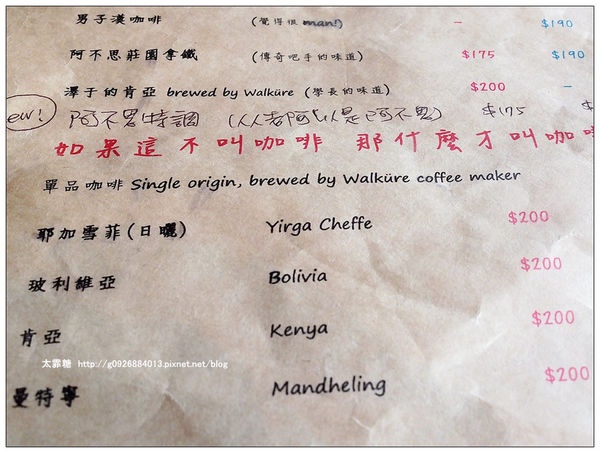 男子漢咖啡 (覺得很 man!) - $190
阿不思莊園拿鐵 (傳奇吧手的味道) $175 $190
澤于的肯亞 brewed by Walküre (學長的味道) $200 -
ew! 阿不思特調 $175 $
如果這不叫咖啡 那什麼才叫咖啡
單品咖啡 Single origin, brewed by Walküre coffee maker
耶加雪菲(日曬) Yirga Cheffe $200
玻利維亞 Bolivia $200
肯亞 Kenya $200
太霏糖 http://g0926884013.pixnet.net/blog
曼特寧 Mandheling $200